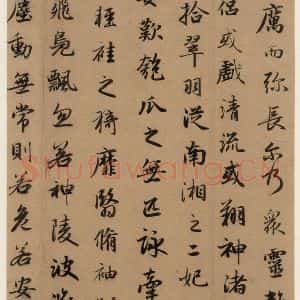 厲而彌長尔乃衆靈雜
侶或戲清流或翔神渚
拾翠羽從南湘之二妃
歎匏瓜之無匹詠牽
袿之猗靡翳脩袖
飛鳧飄忽若神陵波
塵動無常則若危若安